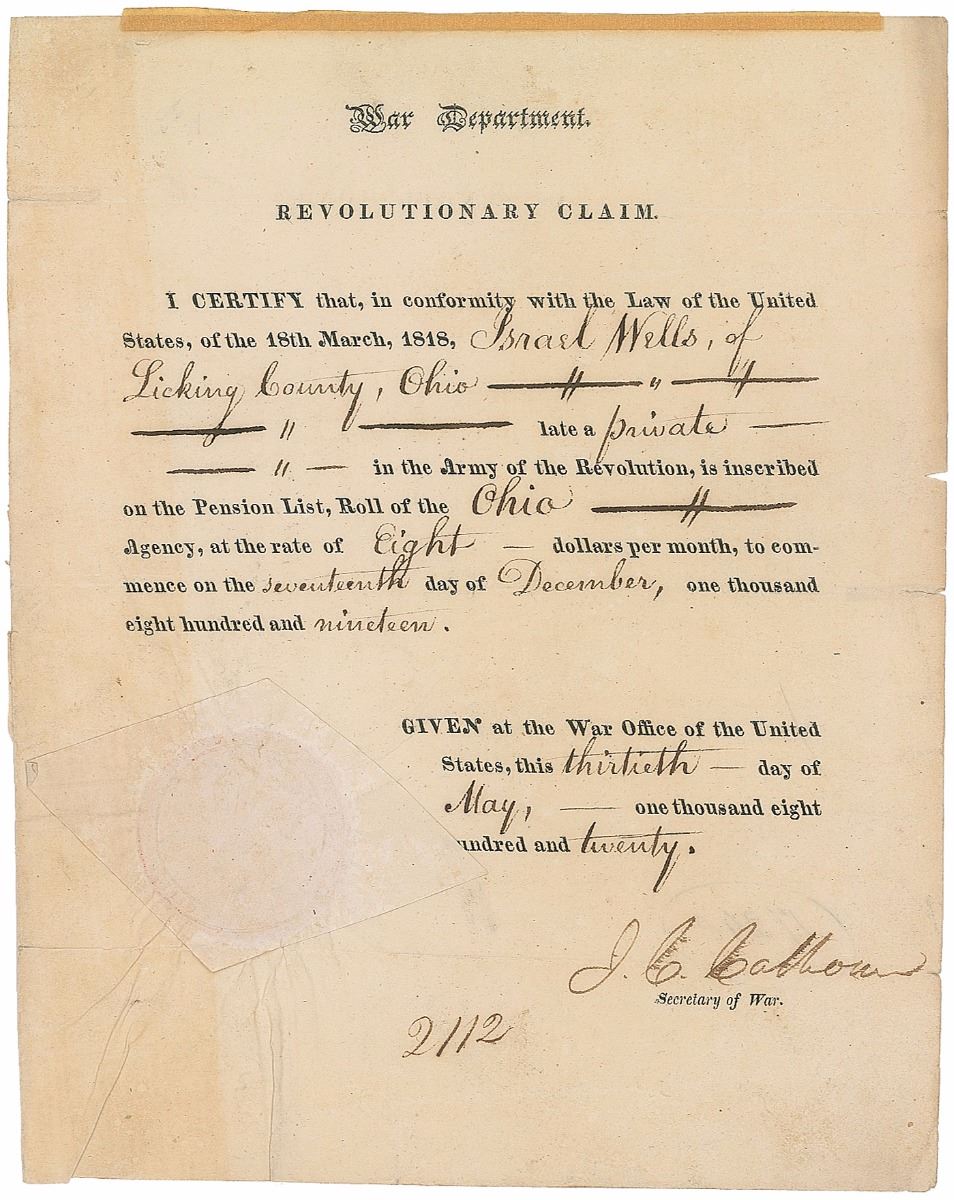 War Department.
REVOLUTIONARY CLAIM.
I CERTIFY that, in conformity with the Law of the United
States, of the 18th March, 1818, Israel Wells, of
Licking County, Ohio — " — " — " —
— " — late a private —
— " — in the Army of the Revolution, is inscribed
on the Pension List, Roll of the Ohio — " —
Agency, at the rate of Eight — dollars per month, to com-
mence on the seventeenth day of December, one thousand
eight hundred and nineteen.
GIVEN at the War Office of the United
States, this thirtieth — day of
May, — one thousand eight
undred and twenty.
J. C. Calhoun
Secretary of War.
2112